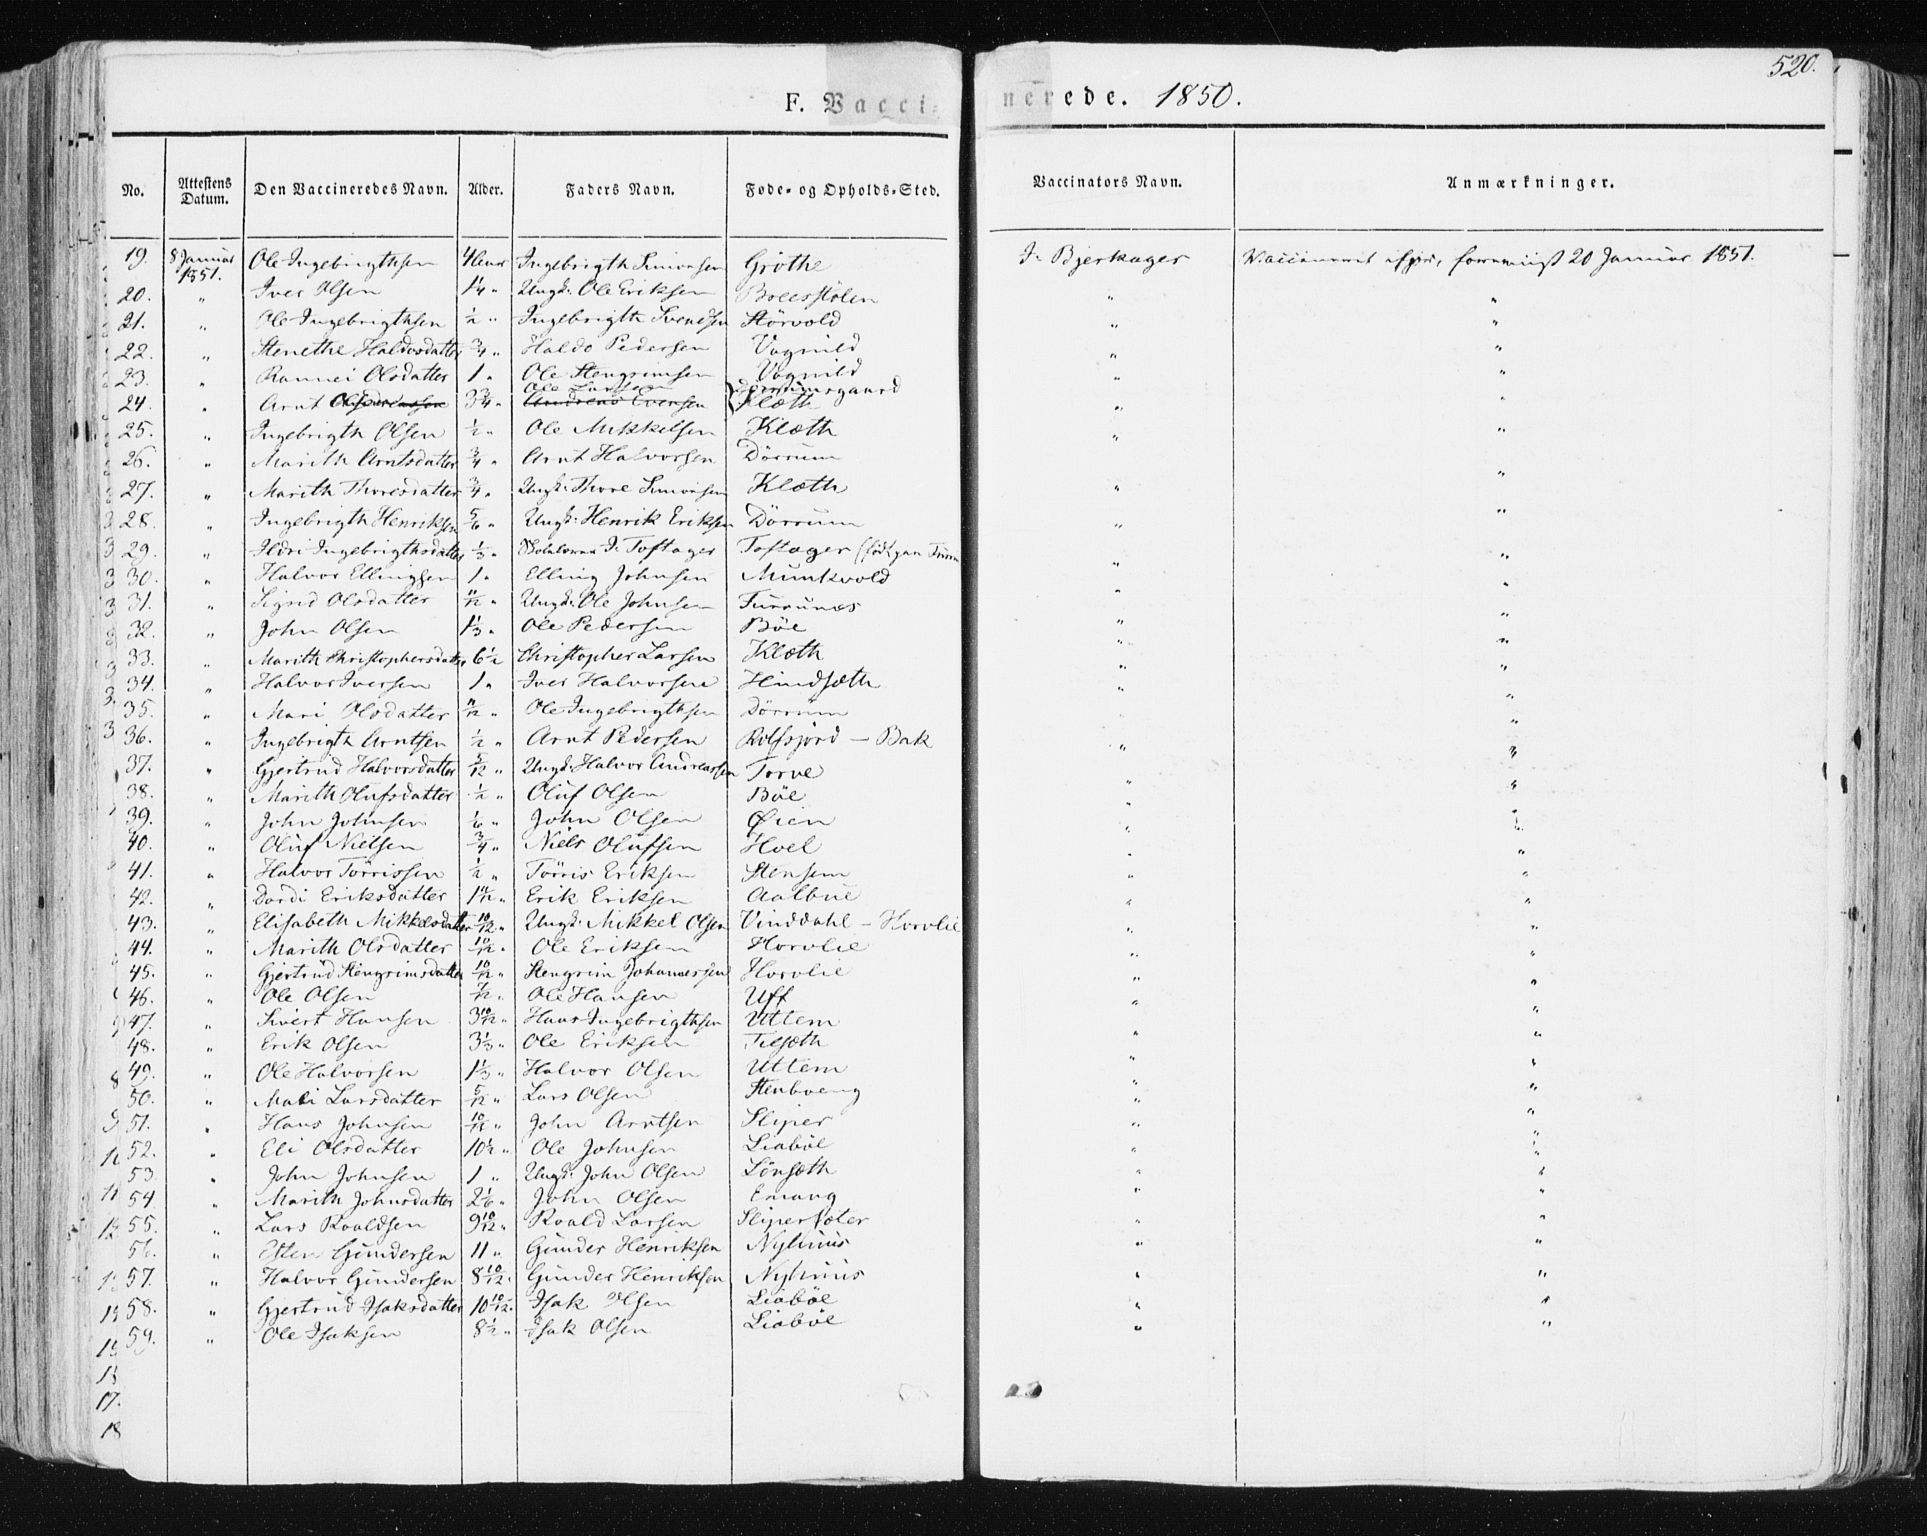 520.
F. Vaccinerede. 1850.
No. Attestens Datum. Den Vaccineredes Navn. Alder. Faders Navn. Føde- og Opholds-Sted. Vaccinators Navn. Anmærkninger.
19. 8 Januar 1851. Ole Ingebrigthsen 4 Ingebrigth Simonsen Gröthe J. Bjerkager 20 Januar 1851.
20. " Iver Olsen 1¼ " Ungk: Ole Eriksen " "
21. " Ole Ingebrigthsen ½ " Ingebrigth Svendsen Störvold " "
22. " Stenethe Haldosdatter ¾ " Haldo Pedersen Vognild " "
23. " Rannei Olsdatter 1 " Ole Stengrimsen Vognild " "
24. " Arnt 3¾ " Ole Larssen Andreas Evensen Klæth " "
25. " Ingebrigth Olsen ½ " Ole Mikkelsen Klæth " "
26. " Marith Arntsdatter ¾ " Arnt Halvorsen Dörrum "
27. " Marith Thoresdatter ¾ " Ungk: Thore Simonsen Klæth " "
28. " Ingebrigth Henriksen 5/6 " Ungk: Henrik Eriksen Dörrum " "
29. " Ildri Ingebrigthsdatter ⅓ " J. Toftager Toftager " "
30. " Halvor Ellingsen 1 " Elling Johnsen Munkvold " "
31. " Sigrid Olsdatter 11/12 " Ungk: Ole Johnsen Furrunæs " "
32. " John Olsen 1⅓ " Ole Pedersen Böe " "
33. " Marith Christophersdatter 6½ Christopher Larsen Klæth " "
34. " Halvor Iversen 1 " Iver Halvorsen Hindsæth " "
35. " Mari Olsdatter 11/12 " Ole Ingebrigthsen Dörrum " "
36. " Ingebrigth Arntsen ½ " Arnt Pedersen Rolfsjord - Bak " "
37. " Gjertrud Halvorsdatter 5/12 " Ungk: Halvor Andreassen Torve " "
38. " Marith Olufsdatter ½ " Oluf Olsen Böe " "
39. " John Johnsen 1/6 " John Olsen Øien " "
40. " Oluf Nielsen ¾ " Niels Olufsen Hoel " "
41. " Halvor Törrissen ½ " Törris Eriksen Stensem " "
42. " Dordi Eriksdatter 1 11/12 " Erik Eriksen Aalbue " "
43. " Elisabeth Mikkelsdatter 10/12 " Ungk: Mikkel Olsen Vinddahl - Horvlie " "
44. " Marith Olsdatter 11/12 " Ole Eriksen Horvlie " "
45. " Gjertrud Stengrimsdatter 10/12 " Stengrim Johannessen Horvlie " "
46. " Ole Olsen 7/12 " Ole Hansen Uff " "
47. " Sivert Hansen 3 10/12 " Hans Ingebrigthsen Uttem " "
48. " Erik Olsen 3⅓ " Ole Eriksen Tilsæth " "
49. " Ole Halvorsen 1⅓ " Halvor Olsen Uttem " "
50. " Mali Larsdatter 5/12 " Lars Olsen Stenboeng " "
51. " Hans Johnsen 10/12 " John Arntsen Sliper " "
52. " Eli Olsdatter 10½ " Ole Johnsen Liaböe " "
53. " John Johnsen 1 " Ungk: John Olsen Lönsæth " "
54 " Marith Johnsdatter 2 1/6 " John Olsen Emang " "
55. " Lars Roaldsen 9 10/12 " Roald Larsen Slipersæter " "
56. " Etten Gundersen 11 " Gunder Henriksen Nyhuus " "
57. " Halvor Gundersen 8 10/12 " Gunder Henriksen Nyhuus " "
58. " Gjertrud Isaksdatter 10 10/12 " Isak Olsen Liaböe " "
59. " Ole Isaksen 8½ " Isak Olsen Liaböe " "
17.
18